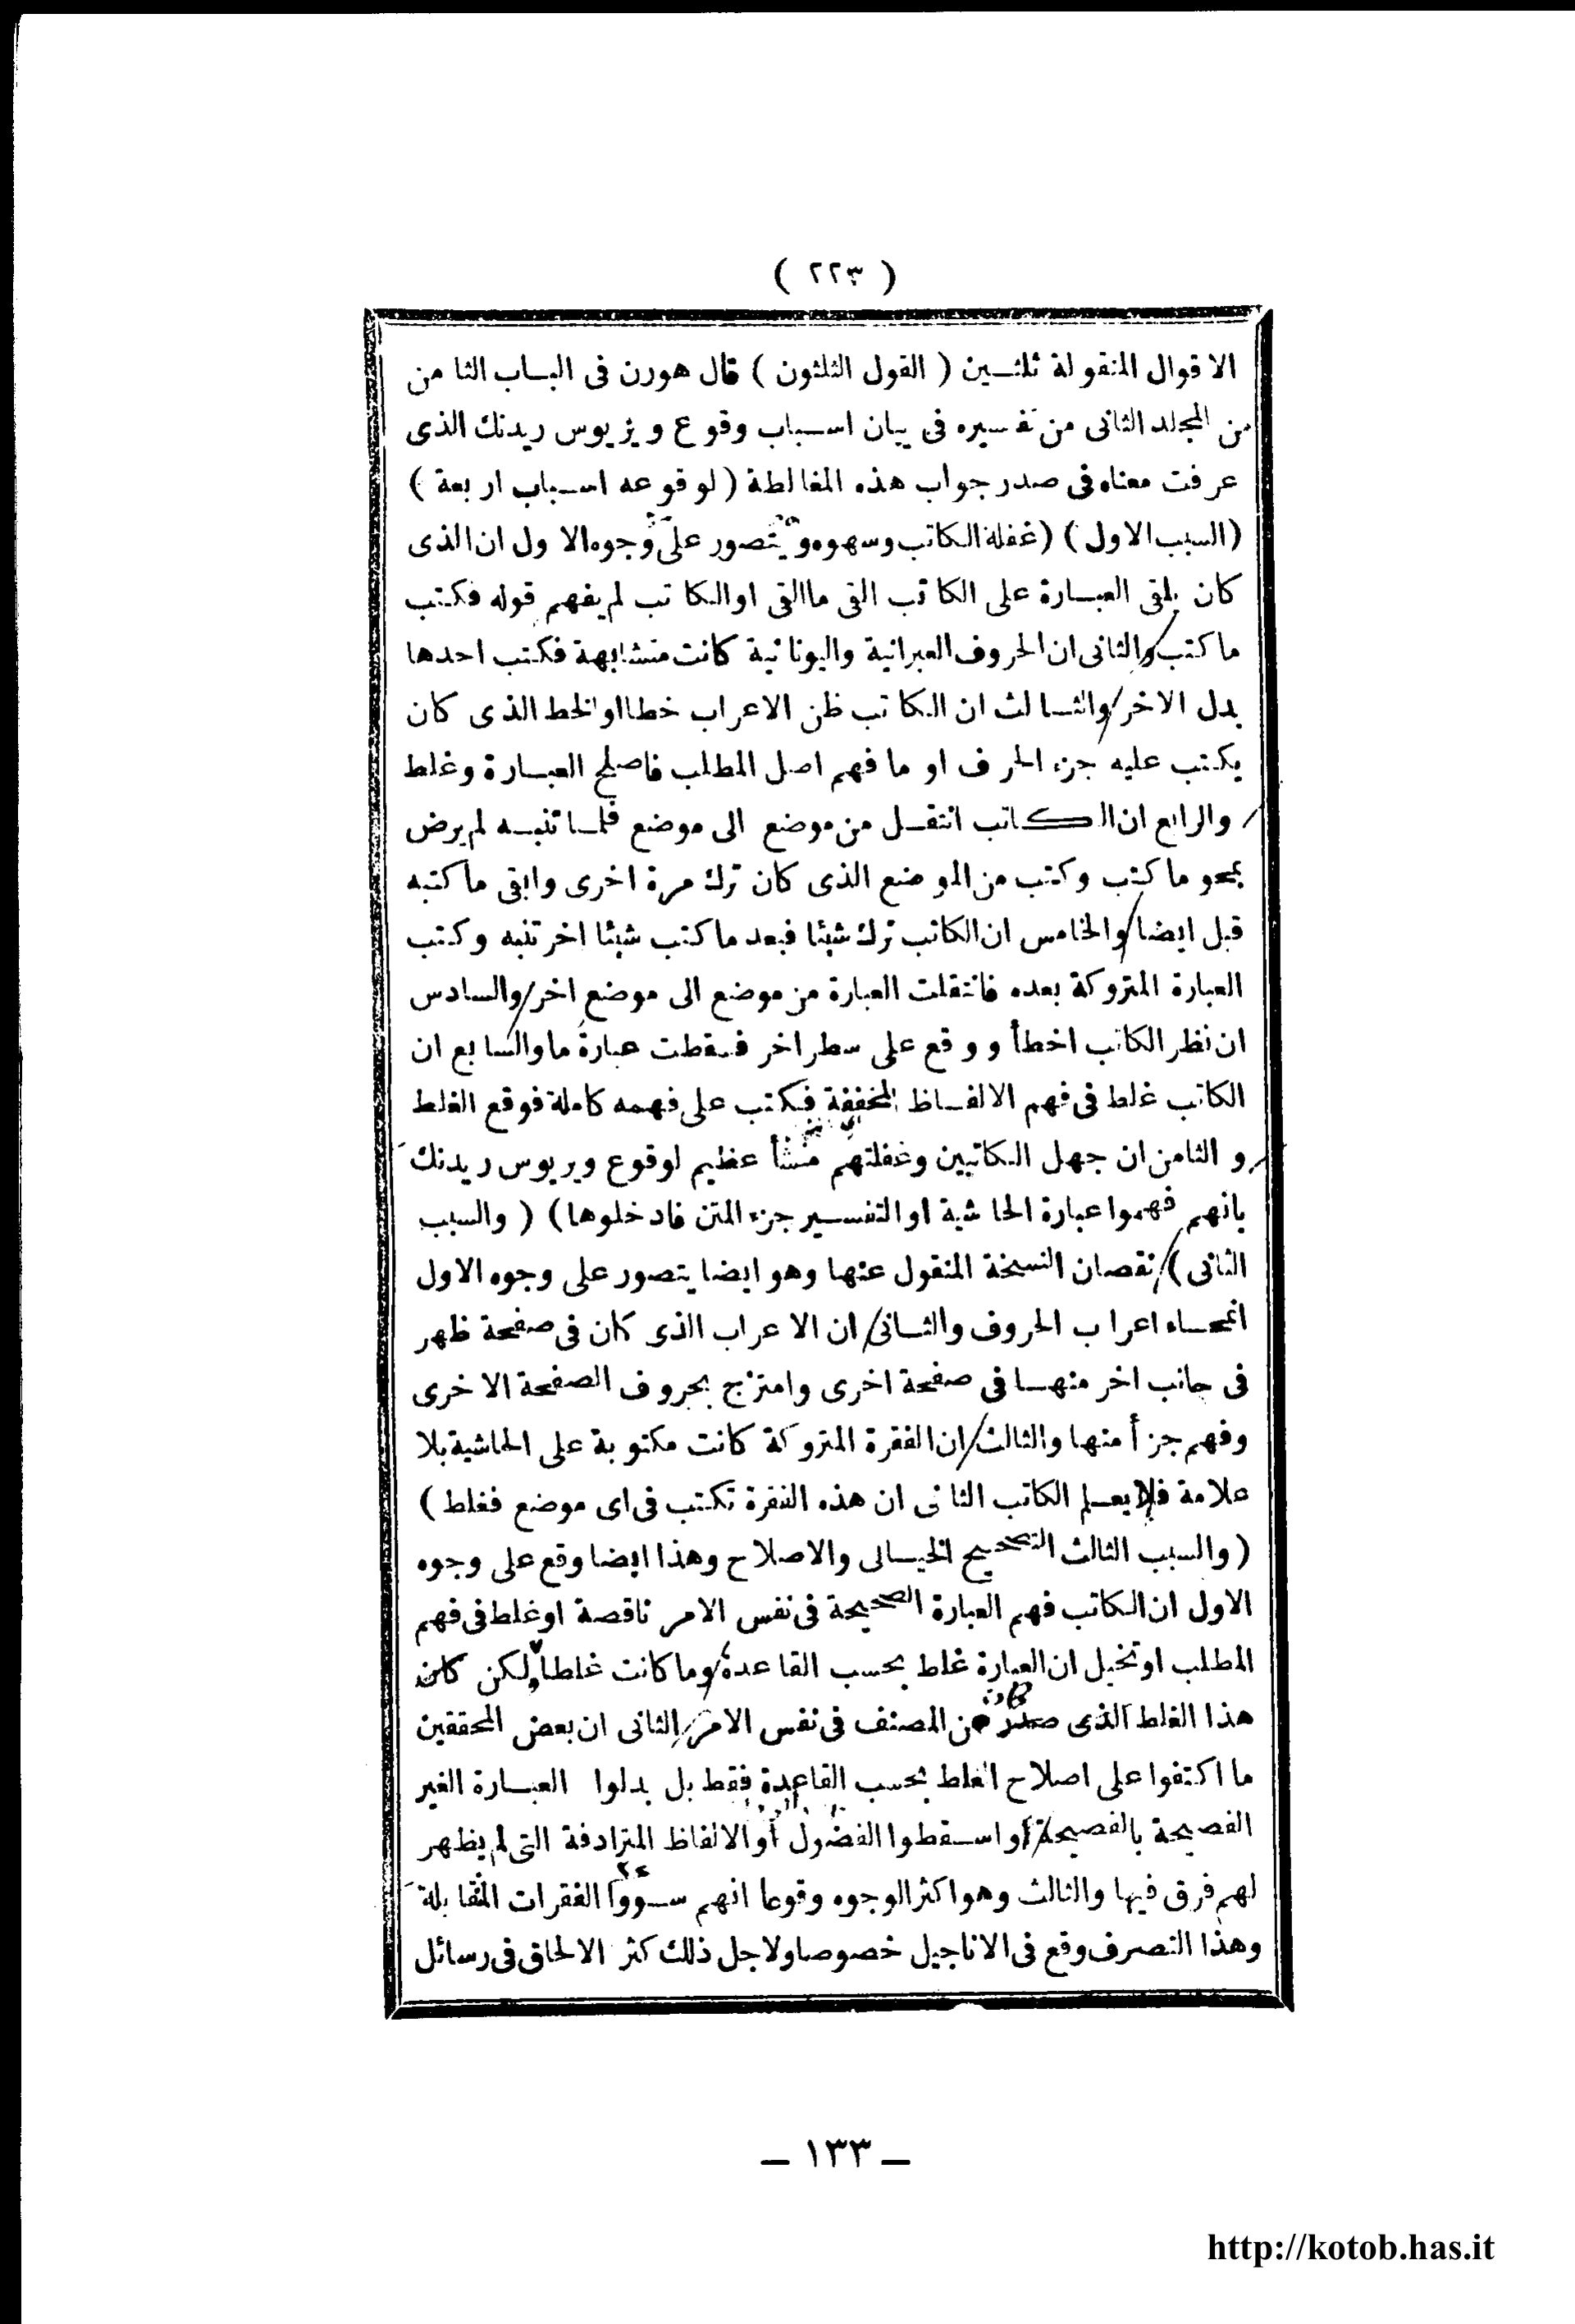 ( ٢٢٣ )
الاقوال المنقولة ثلثـين ( القول الثلثون ) قال هورن فى البـاب الثامن
من المجلد الثانى من تفسيره فى بيان اسـباب وقوع ويريوس ريدنك الذى
عرفت معناه فى صدر جواب هذه المغالطة ( لوقوعه اسـباب اربعة )
(السبب الاول ) (غفلة الكاتب وسهوه ويتصور على وجوه الاول ان الذى
كان يلقى العبـارة على الكاتب القى ماالقى اوالكاتب لم يفهم قوله فكتب
ماكتب والثانى ان الحروف العبرانية واليونانية كانت متشابهة فكتب احدها
بدل الاخر والثـالث ان الكاتب ظن الاعراب خطا اوالخط الذى كان
يكتب عليه جزء الحرف او مافهم اصل المطلب فاصلح العبـارة وغلط
والرابع ان الـكاتب انتقـل من موضع الى موضع فلمـا تنبـه لم يرض
بمحو ماكتب وكتب من الموضع الذى كان ترك مرة اخرى وابقى ماكتبه
قبل ايضا والخامس ان الكاتب ترك شيئا فبعد ماكتب شيئا اخر تنبه وكتب
العبارة المتروكة بعده فانتقلت العبارة من موضع الى موضع اخر والسادس
ان نظر الكاتب اخطأ ووقع على سطر اخر فسقطت عبارة ما والسابع ان
الكاتب غلط فى فهم الالفـاظ المخففة فكتب على فهمه كاملة فوقع الغلط
والثامن ان جهل الكاتبين وغفلتهم منشأ عظيم لوقوع ويريوس ريدنك
بانهم فهموا عبارة الحاشية اوالتفسـير جزء المتن فادخلوها ) ( والسبب
الثانى ) نقصان النسخة المنقول عنها وهو ايضا يتصور على وجوه الاول
انمحـاء اعراب الحروف والثـانى ان الاعراب الذى كان فى صفحة ظهر
فى جانب اخر منهـا فى صفحة اخرى وامتزج بحروف الصفحة الاخرى
وفهم جزأ منها والثالث ان الفقرة المتروكة كانت مكتوبة على الحاشية بلا
علامة فلايعـلم الكاتب الثانى ان هذه الفقرة تكتب فى اى موضع فغلط )
( والسبب الثالث التصحيح الخيـالى والاصلاح وهذا ايضا وقع على وجوه
الاول ان الكاتب فهم العبارة الصحيحة فى نفس الامر ناقصة اوغلط فى فهم
المطلب اوتخيل ان العبارة غلط بحسب القاعدة وماكانت غلطا ولكن كان
هذا الغلط الذى صدر من المصنف فى نفس الامر الثانى ان بعض المحققين
ما اكتفوا على اصلاح الغلط بحسب القاعدة فقط بل بدلوا العبـارة الغير
الفصيحة بالفصيحة أو اسـقطوا الفضول أو الالفاظ المترادفة التى لم يظهر
لهم فرق فيها والثالث وهو اكثر الوجوه وقوعا انهم سـووا الفقرات المتقابلة
وهذا التصرف وقع فى الاناجيل خصوصا ولاجل ذلك كثر الالحاق فى رسائل
ـ ١٣٣ ـ
http://kotob.has.it